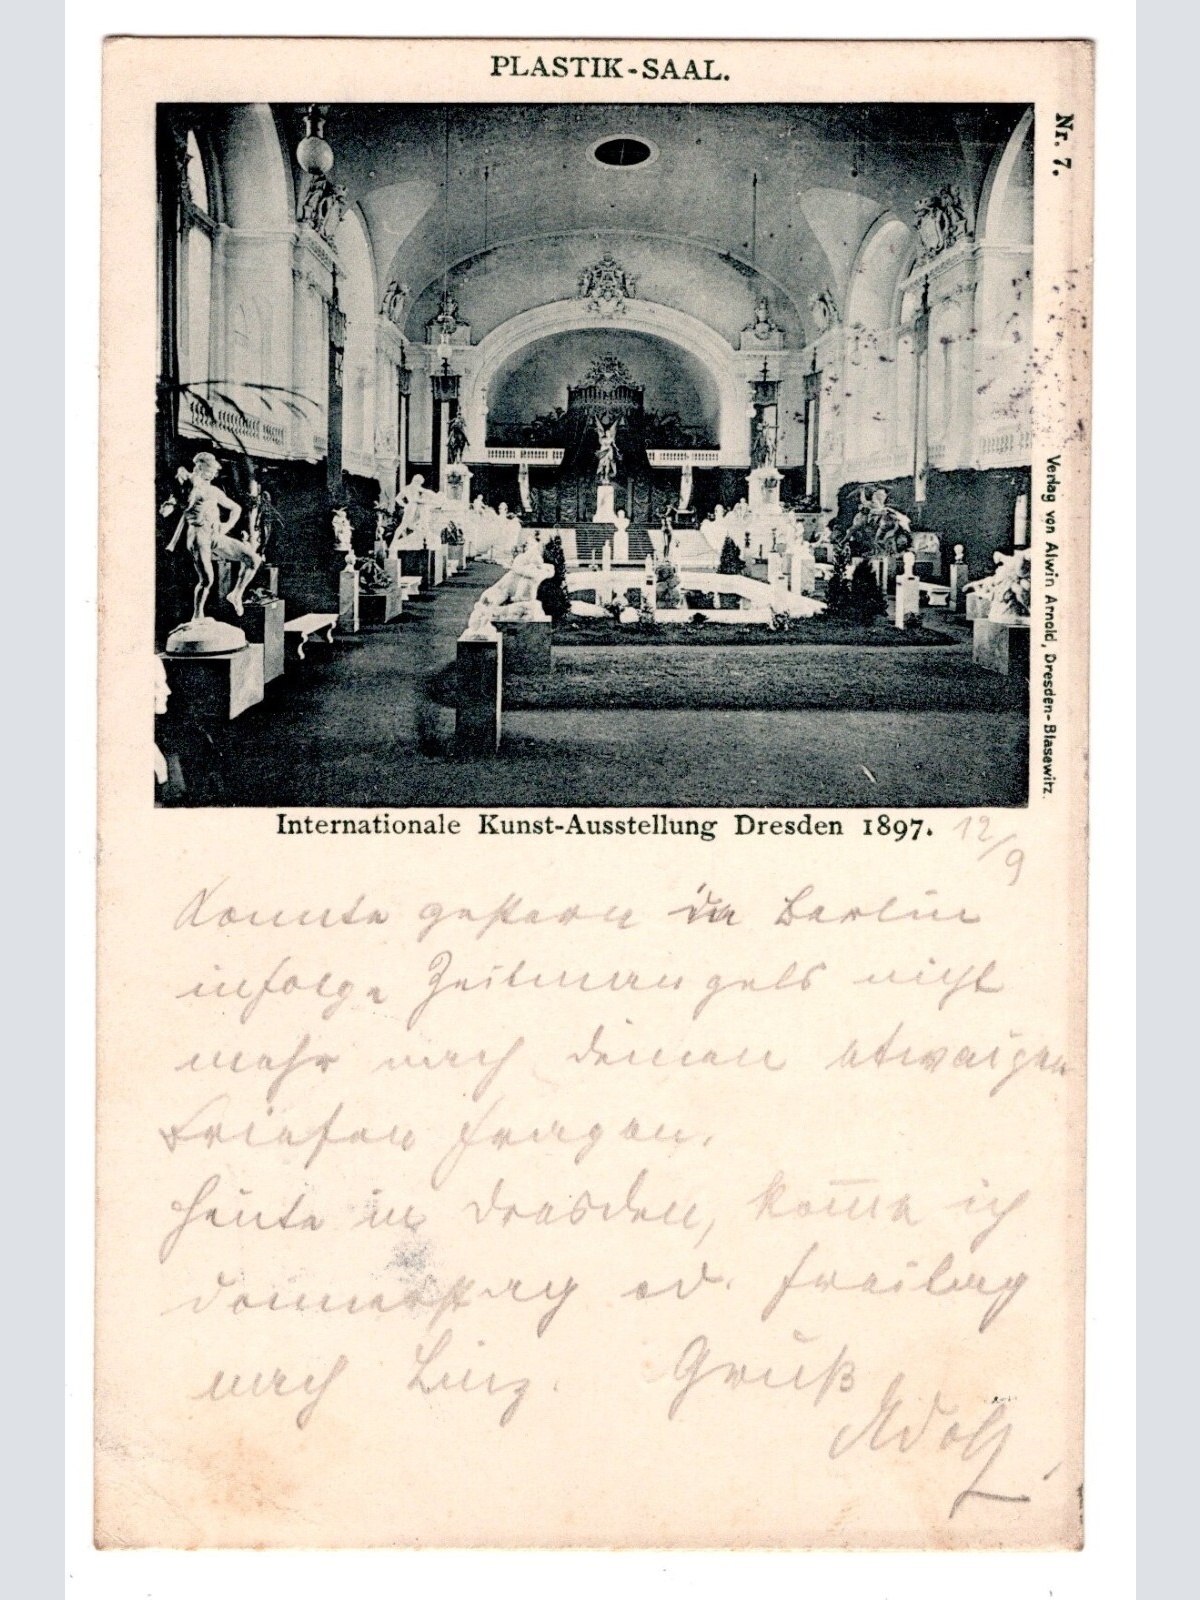 PLASTIK-SAAL.
Nr. 7.
Verlag von Alwin Arnold, Dresden-Blasewitz.
Internationale Kunst-Ausstellung Dresden 1897.
12/9
Konnte gestern in Berlin
infolge Zeitmangels nicht
mehr nach deinen etwaigen
Briefen fragen.
Heute in Dresden, kom̅e ich
Donnerstag od. Freitag
nach Linz. Gruß
Adolf